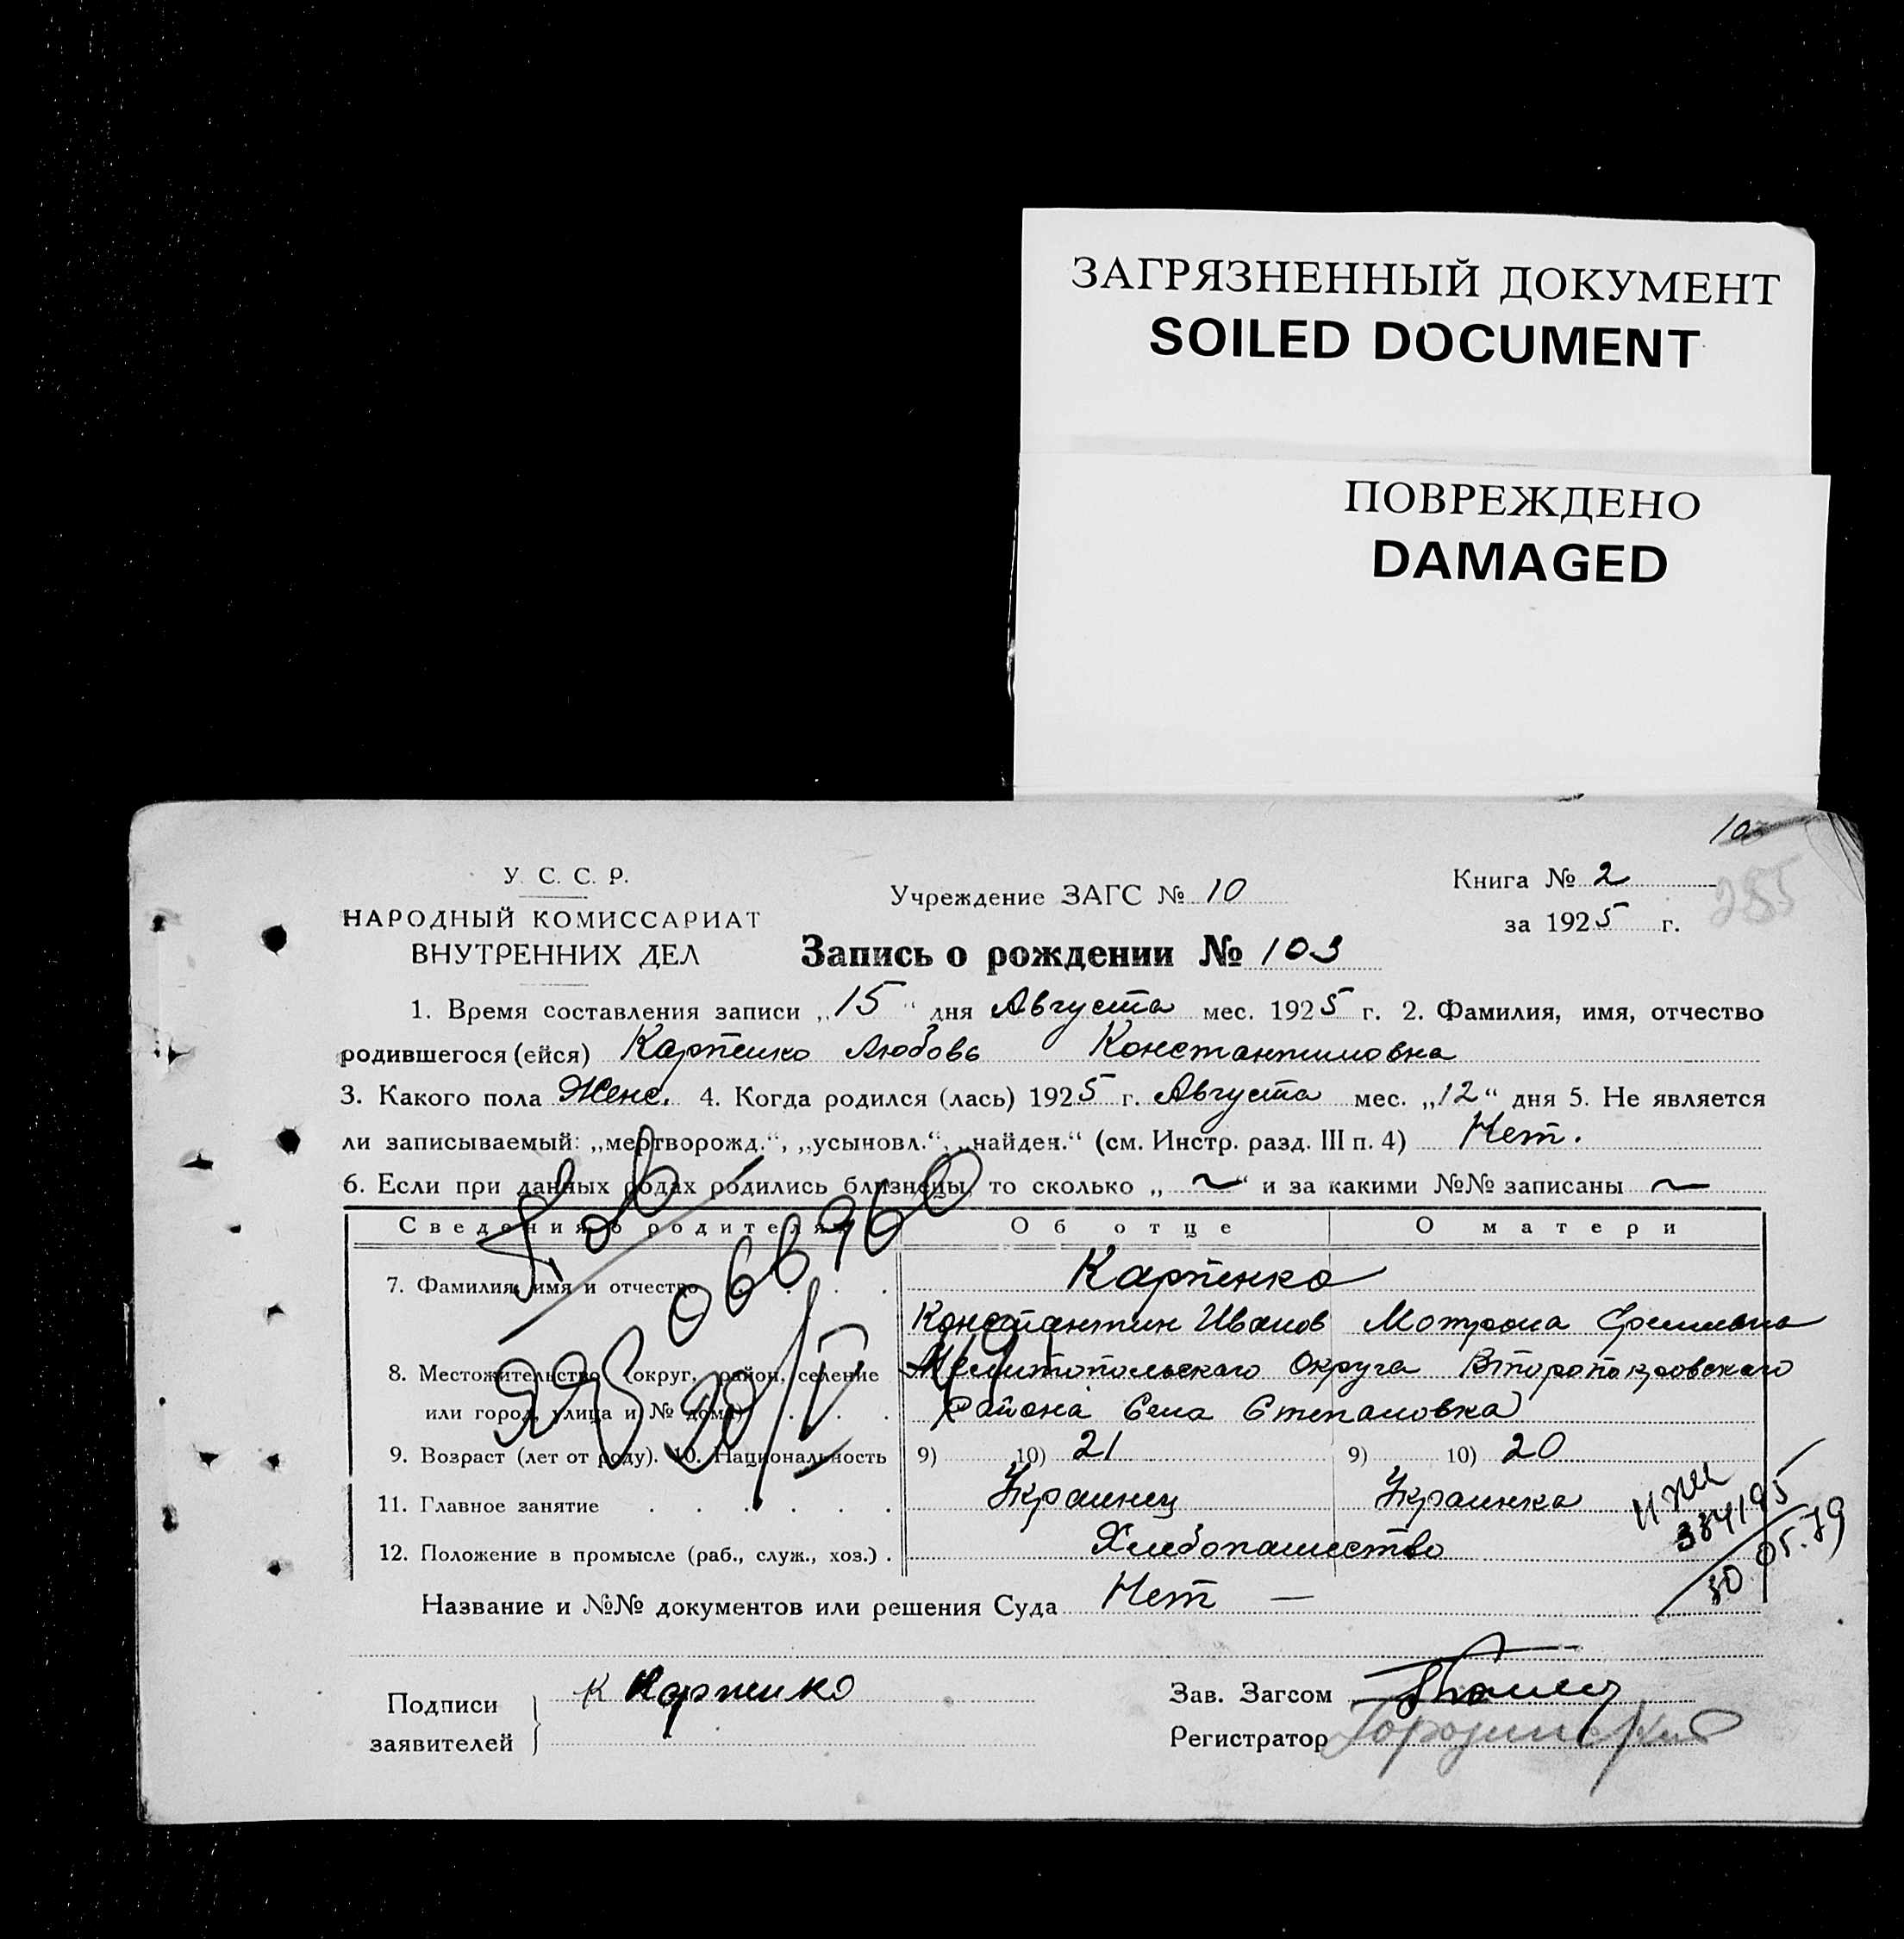 ЗАГРЯЗНЕННЫЙ ДОКУМЕНТ
SOILED DOCUMENT
ПОВРЕЖДЕНО
DAMAGED
103
285
У. С. С. Р.
НАРОДНЫЙ КОМИССАРИАТ
ВНУТРЕННИХ ДЕЛ
Учреждение ЗАГС № 10
Книга № 2
за 1925 г.
Запись о рождении № 103
1. Время составления записи „15“ дня Августа мес. 1925 г. 2. Фамилия, имя, отчество
родившегося (ейся) Карпенко Любовь Константиновна
3. Какого пола Женс. 4. Когда родился (лась) 1925 г. Августа мес. „12“ дня 5. Не является
ли записываемый: „мертворожд.“, „усыновл.“, „найден.“ (см. Инстр. разд. III п. 4) Нет.
6. Если при данных родах родились близнецы, то сколько „ ~ “ и за какими №№ записаны ~
Сведения о родителях Об отце О матери
7. Фамилия, имя и отчество Карпенко
Константин Иванов Мотрона
8. Местожительство (округ, район, селение Мелитопольскаго Округа Второпокровскаго
или город, улица и № дома) Района Села Степановка
9. Возраст (лет от роду). 10. Национальность 9) 10) 21 9) 10) 20
11. Главное занятие Украинец Украинка
12. Положение в промысле (раб., служ., хоз.) Хлебопашество
384195
30.05.79
Название и №№ документов или решения Суда Нет —
Подписи заявителей К Карпенко
Зав. Загсом
Регистратор